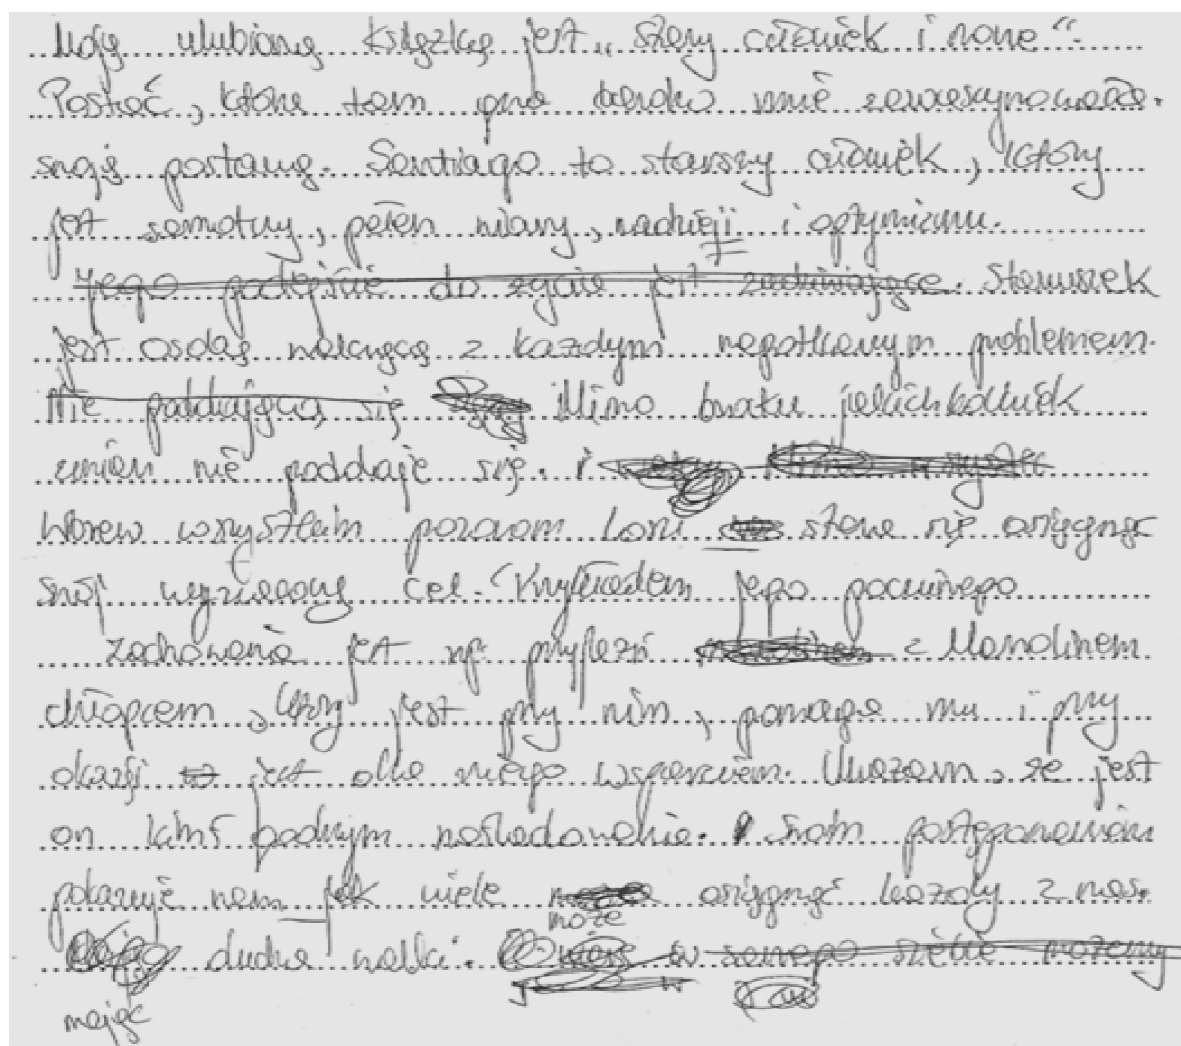 Moją ulubioną książką jest „Stary człowiek i morze".
Postać, która tam gra bardzo mnie zainteresynowała
swoją postawą. Santiago to starszy człowiek, który
jest samotny, pełen wiary, nadzieji i optymizmu.
Jego podejście do życia jest zadziwiające. Staruszek
jest osobą walczącą z każdym napotkanym problemem.
Nie poddającą się Mimo braku jakichkolwiek
zmian nie poddaje się. i
Wbrew wszystkim pozorom losu stara się osiągnąć
swój wyznaczony cel. Przykładem jego poczciwego
zachowania jest np przyjaźń z Manolinem
chłopcem, który jest przy nim, pomaga mu i przy
okazji jest dla niego wsparciem. Uważam, że jest
on kimś godnym naśladowania. Swoim postępowaniem
pokazuje nam jak wiele może osiągnąć każdy z nas.
mając ducha walki. w samego siebie możemy